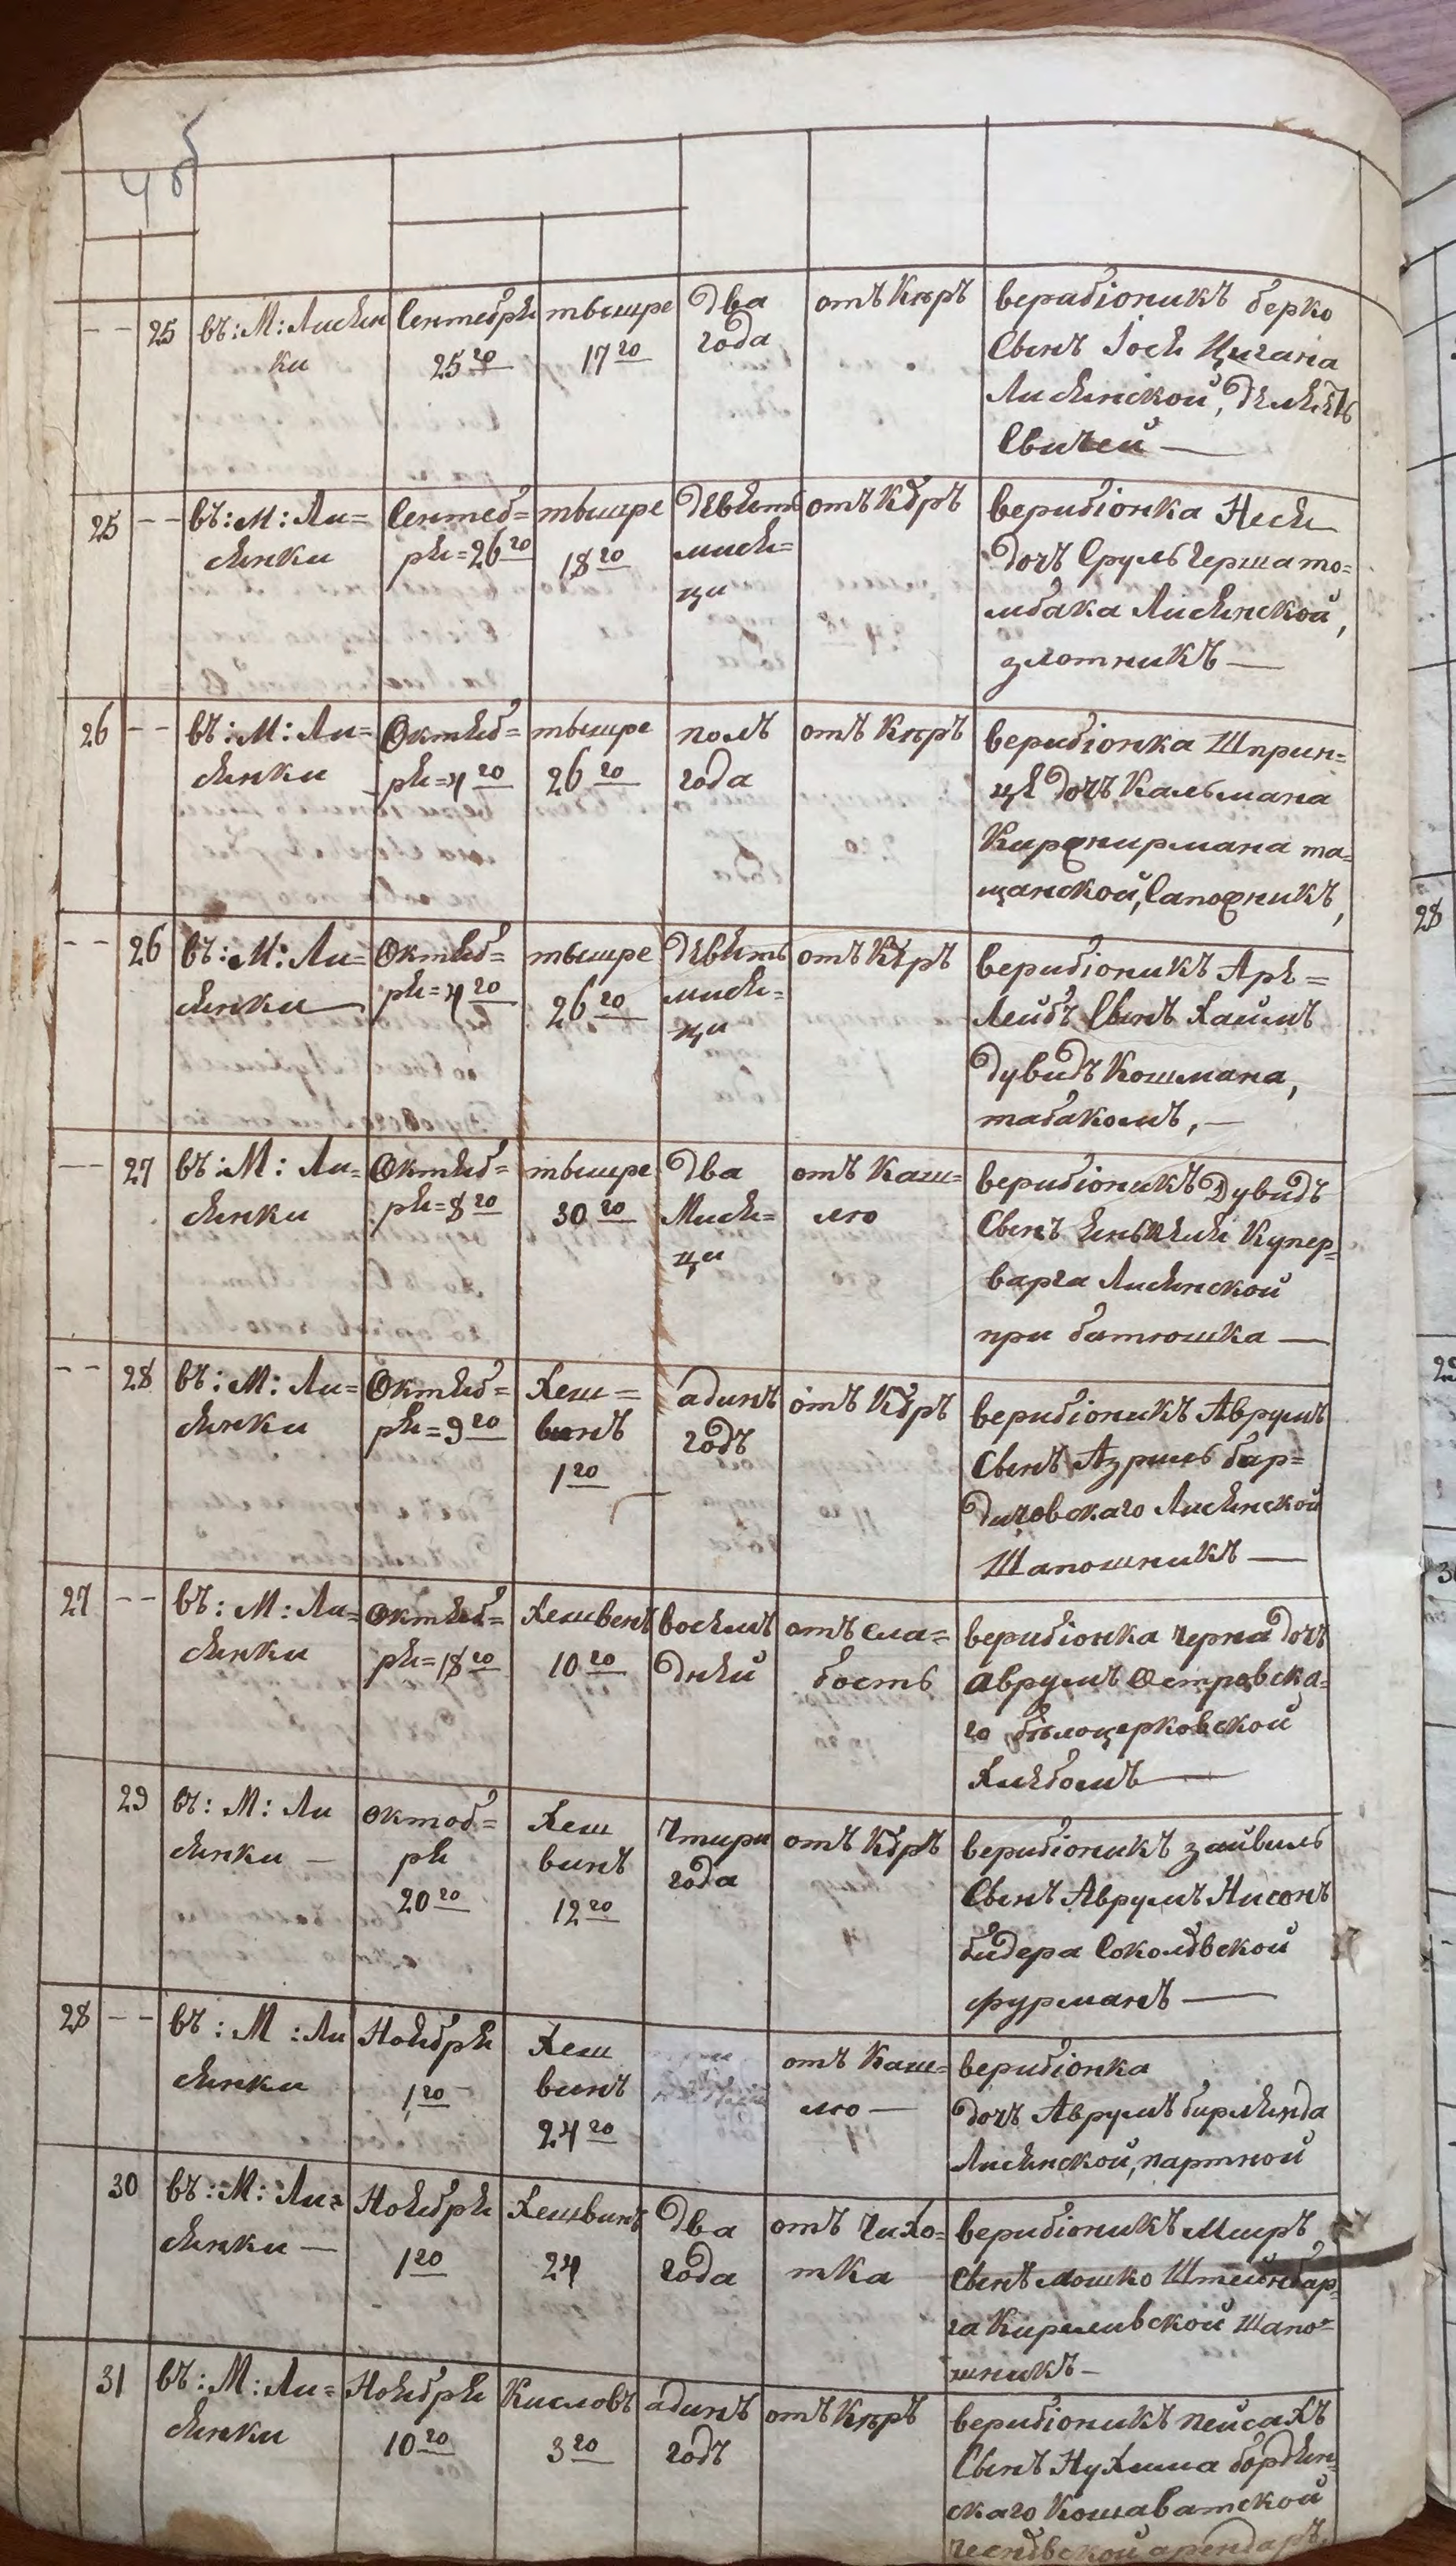 25 въ: М: Лисян
ки
Сентебря
25го
тышре
17го
два
года
отъ Кѣръ
верабіоникъ берко
Сынъ Іося Цигана
Лисянской,
Свичей —
25
въ: М: Ли=
сянки
Сентеб=
ря = 26го
тышре
18го
девять
мися=
ци
отъ Кѣръ
верибіонка Нася
дочъ Сруль Герша то=
мбака Лисянской,
злотникъ —
26
въ: М: Ли=
сянки
Октяб=
ря = 4го
тышре
26го
полъ
года
отъ Кѣръ
верибіонка Шприн=
це дочъ Кальмана
та=
щанской, Сапожникъ,
26
въ: М: Ли=
сянки
Октяб=
ря = 4го
тышре
26го
девять
мися=
ци
отъ Кѣръ
верибіоникъ Арь=
Лейбъ Сынъ Хаимъ
Дувидъ Кошмана,
табакомъ, —
27
въ: М: Ли=
сянки
Октяб=
ря = 8го
тышре
30го
два
Мися=
ци
отъ Каш=
лю
верибіоникъ Дувидъ
Сынъ Купер=
варга Лисянской
при батюшка —
28
въ: М: Ли=
сянки
Октяб=
ря = 9го
Хеш=
винъ
1го
адинъ
годъ
отъ Кѣръ
верибіоникъ Аврумъ
Сынъ Азриль бар=
дичовскаго Лисянской
Шапошникъ —
27
въ: М: Ли=
сянки
Октяб=
ря = 18го
Хешвенъ
10го
восемъ
дней
отъ сла=
бость
верибіонка Черна дочъ
Аврумъ Островска=
го бѣлоцерковской
Хлебомъ —
29
въ: М: Ли
сянки —
Октоб=
ря
20го
Хеш
винъ
12го
Чтири
года
отъ Кѣръ
верибіоникъ Зайвиль
Сынъ Аврумъ Нисонъ
бидера Соколовской
фурманъ —
28
въ: М: Ли
сянки
Ноября
1го
Хеш
винъ
24го
отъ Каш=
лю —
верибіонка
дочъ Аврумъ бирлянда
Лисянской, партной
30
въ: М: Ли=
сянки —
Ноября
1го
Хешвинъ
24
два
года
отъ Чихо=
тка
верибіоникъ Меиръ
Сынъ Мошко Штейнбар=
га Кириливской Шапо=
шникъ —
31
въ: М: Ли=
сянки
Ноября
10го
Кисловъ
3го
адинъ
годъ
отъ Кѣръ
верибіоникъ Пейсахъ
Сынъ Нухима бордян=
скаго Кошаватской
арендаръ